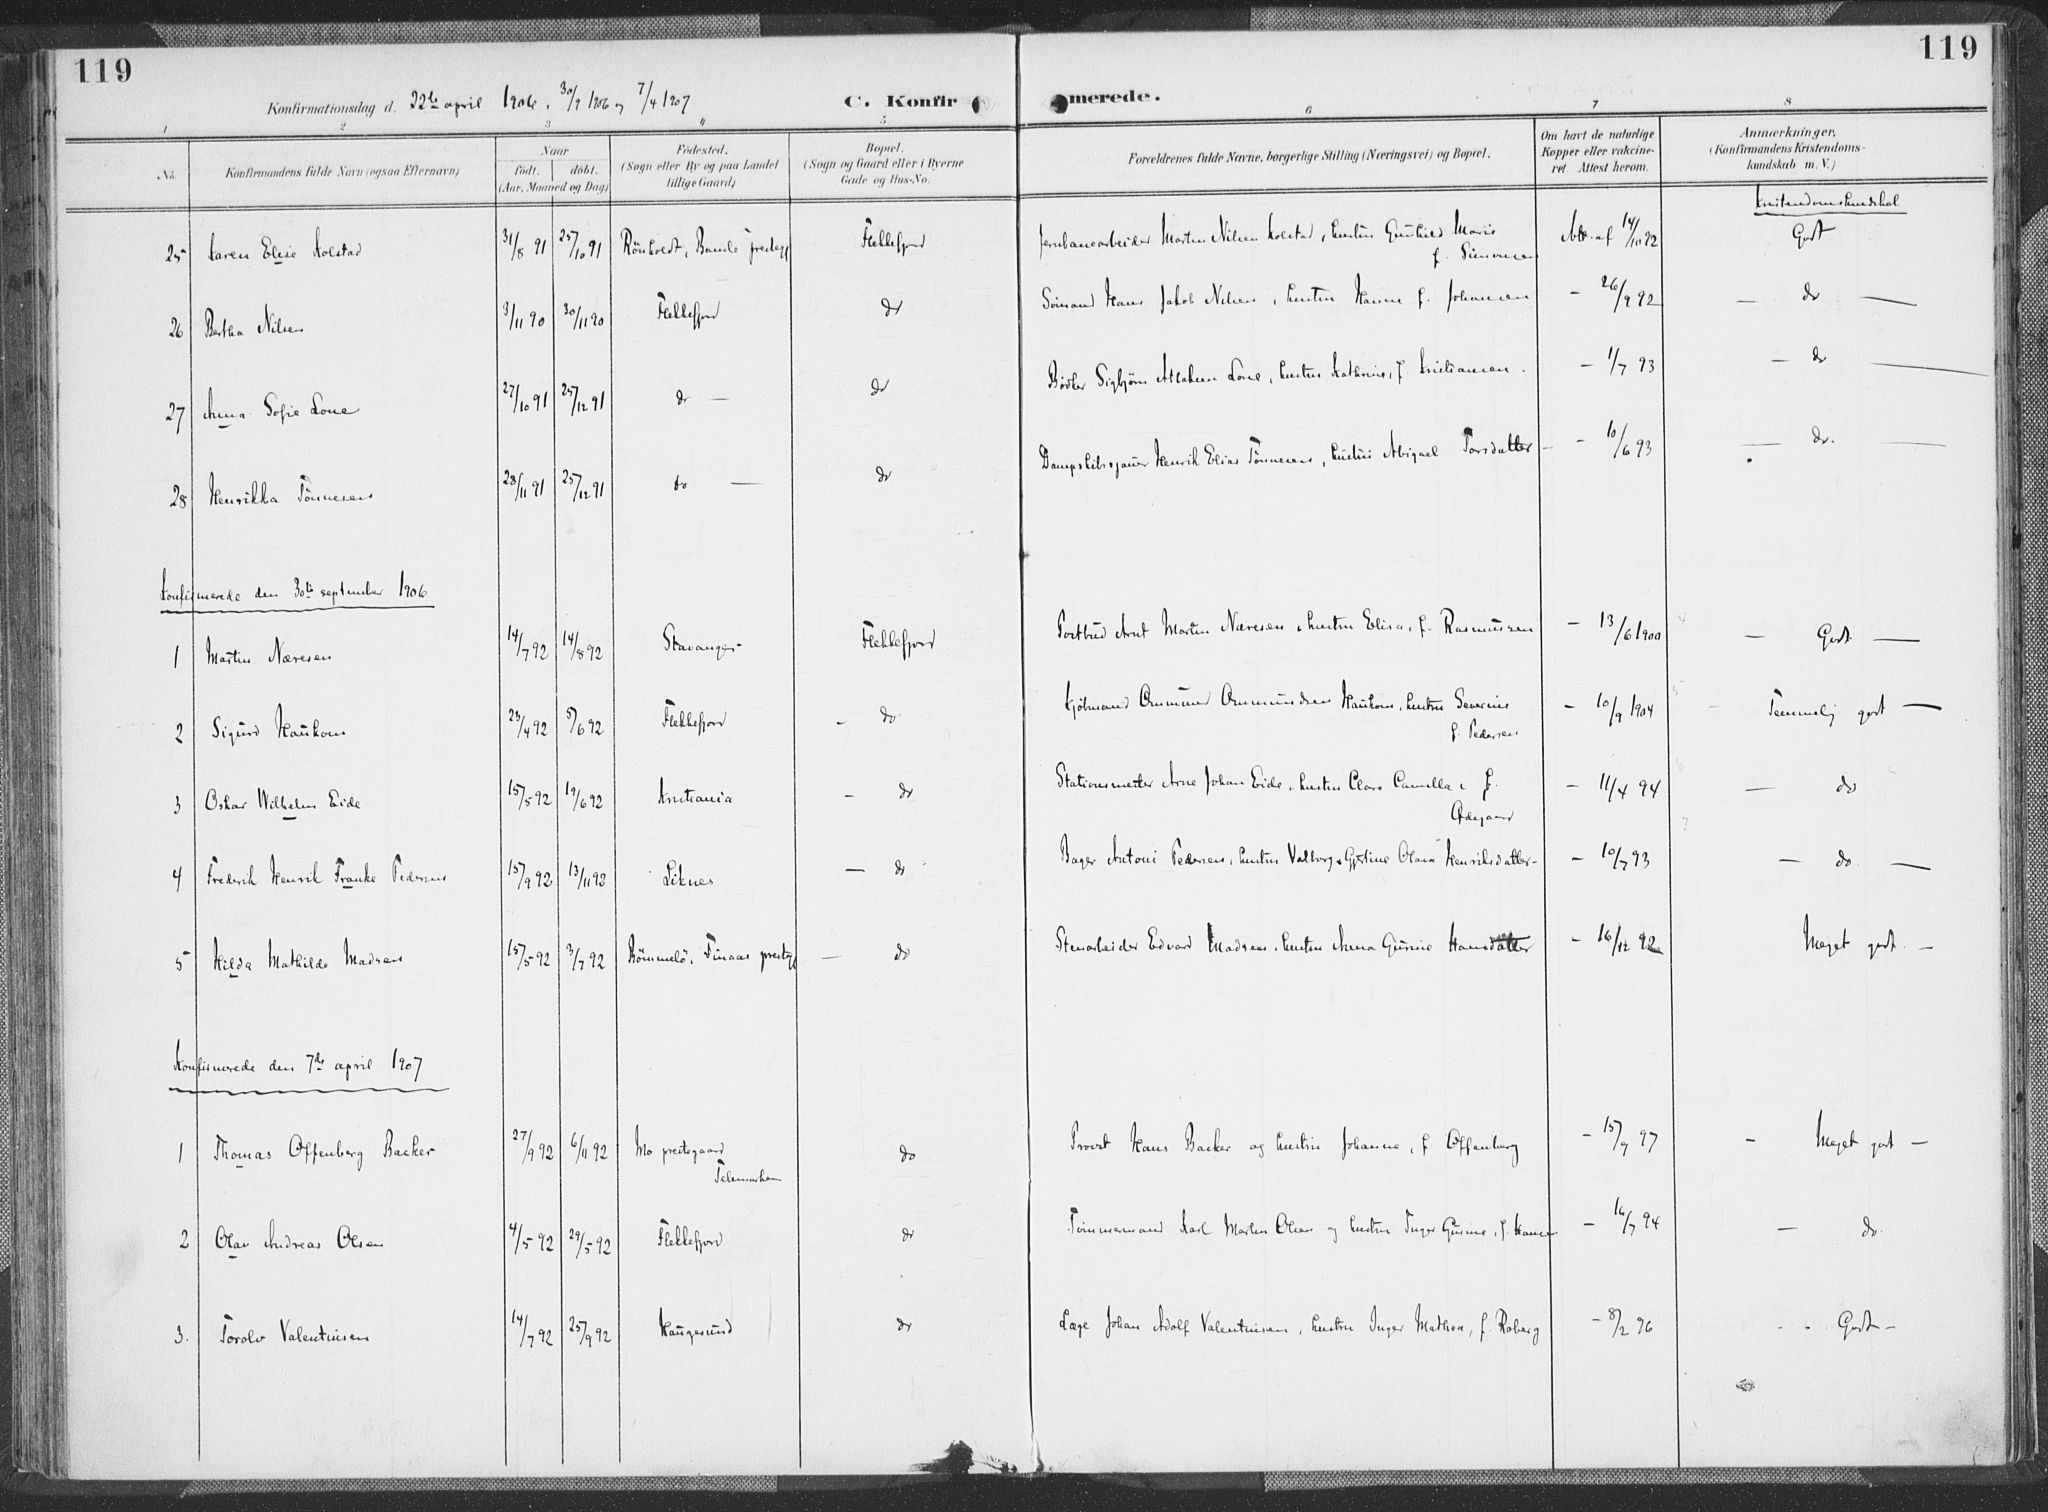 119
119
Konfirmationsdag d. 22de april 1906, 30/9 1906 og 7/4 1907
C. Konfirmerede.
1 2 3 4 5 6 7 8
No.
Konfirmandens fulde Navn (ogsaa Efternavn)
Naar
født. døbt.
(Aar, Maaned og Dag)
Fødested.
(Sogn eller By og paa Landet tillige Gaard)
Bopæl.
(Sogn og Gaard eller i Byerne Gade og Hus-No.
Forældrenes fulde Navne, borgerlige Stilling (Næringsvei) og Bopæl.
Om havt de naturlige Kopper eller vakcineret. Attest herom.
Anmærkninger.
(Konfirmandens Kristendomskundskab m. V.)
Kristendomskundskab
25 Karen Elise Kolstad 31/8 91 25/10 91 Rönholdt, Bamle prestegj Flekkefjord Jernbanearbeider Martin Nilsen Kolstad, hustru Gunhild Marie f. Simonsen Att. af 14/10 92 Godt
26 Bertha Nilsen 3/11 90 30/11 90 Flekkefjord do Sömand Hans Jakob Nilsen, hustru Hanne f. Johansen — 26/9 92 — do —
27 Anna Sofie Lone 27/10 91 25/12 91 do — do Bödker Sigbjörn Aslaksen Lone, hustru Kathrine, f. Kristiansen. — 1/7 93 — do —
28 Henrikka Tönnesen 28/11 91 25/12 91 do — do Henrik Elias Tönnesen, hustru Abigael Torsdatter — — 10/6 93 — do. —
Konfirmerede den 30te september 1906
1 Martin Næresen 14/7 92 14/8 92 Stavanger Flekkefjord Postbud Arnt Martin Næresen, hustru Elisa, f. Rasmussen — 13/6 1900 — Godt. —
2 Sigurd Haukom 23/4 92 5/6 92 Flekkefjord — do Kjöbmand Ommund Ommundsen Haukom, hustru Severine f. Pedersen — 10/9 1904 — Temmelig godt —
3 Oskar Wilhelm Eide 15/5 92 19/6 92 Kristiania — do Stationsmester Arne Johan Eide, hustru Clara Camilla, f. Ödegaard — 11/4 94 — do
4 Frederik Henrik Franke Pedersen 15/9 92 13/11 92 Liknes — do Bager Antoni Pedersen, hustru Valborg Gjertine Olava Henriksdatter — — 10/7 93 — do —
5 Hilda Mathilde Madsen 15/5 92 3/7 92 Römmelö, Finaas prestegj — do Stenarbeider Edvard Madsen, hustru Anna Gurine Hansdatter — 16/12 92 Meget godt. —
Konfirmerede den 7de april 1907
1 Thomas Offenberg Backer 27/9 92 6/11 92 Mo prestegaard Telemarken do Provst Hans Backer og hustru Johanne, f. Offenberg — 15/9 97 — Meget godt —
2 Olav Andreas Olsen 4/5 92 29/5 92 Flekkefjord do Tömmermand Karl Martin Olsen og hustru Inger Gurine, f. Hansen — 16/7 94 — do.
3. Torolv Valentinsen 14/7 92 25/9 92 Haugesund do Læge Johan Adolf Valentinsen, hustru Inger Mathea, f. Roberg — 8/2 96 Godt —